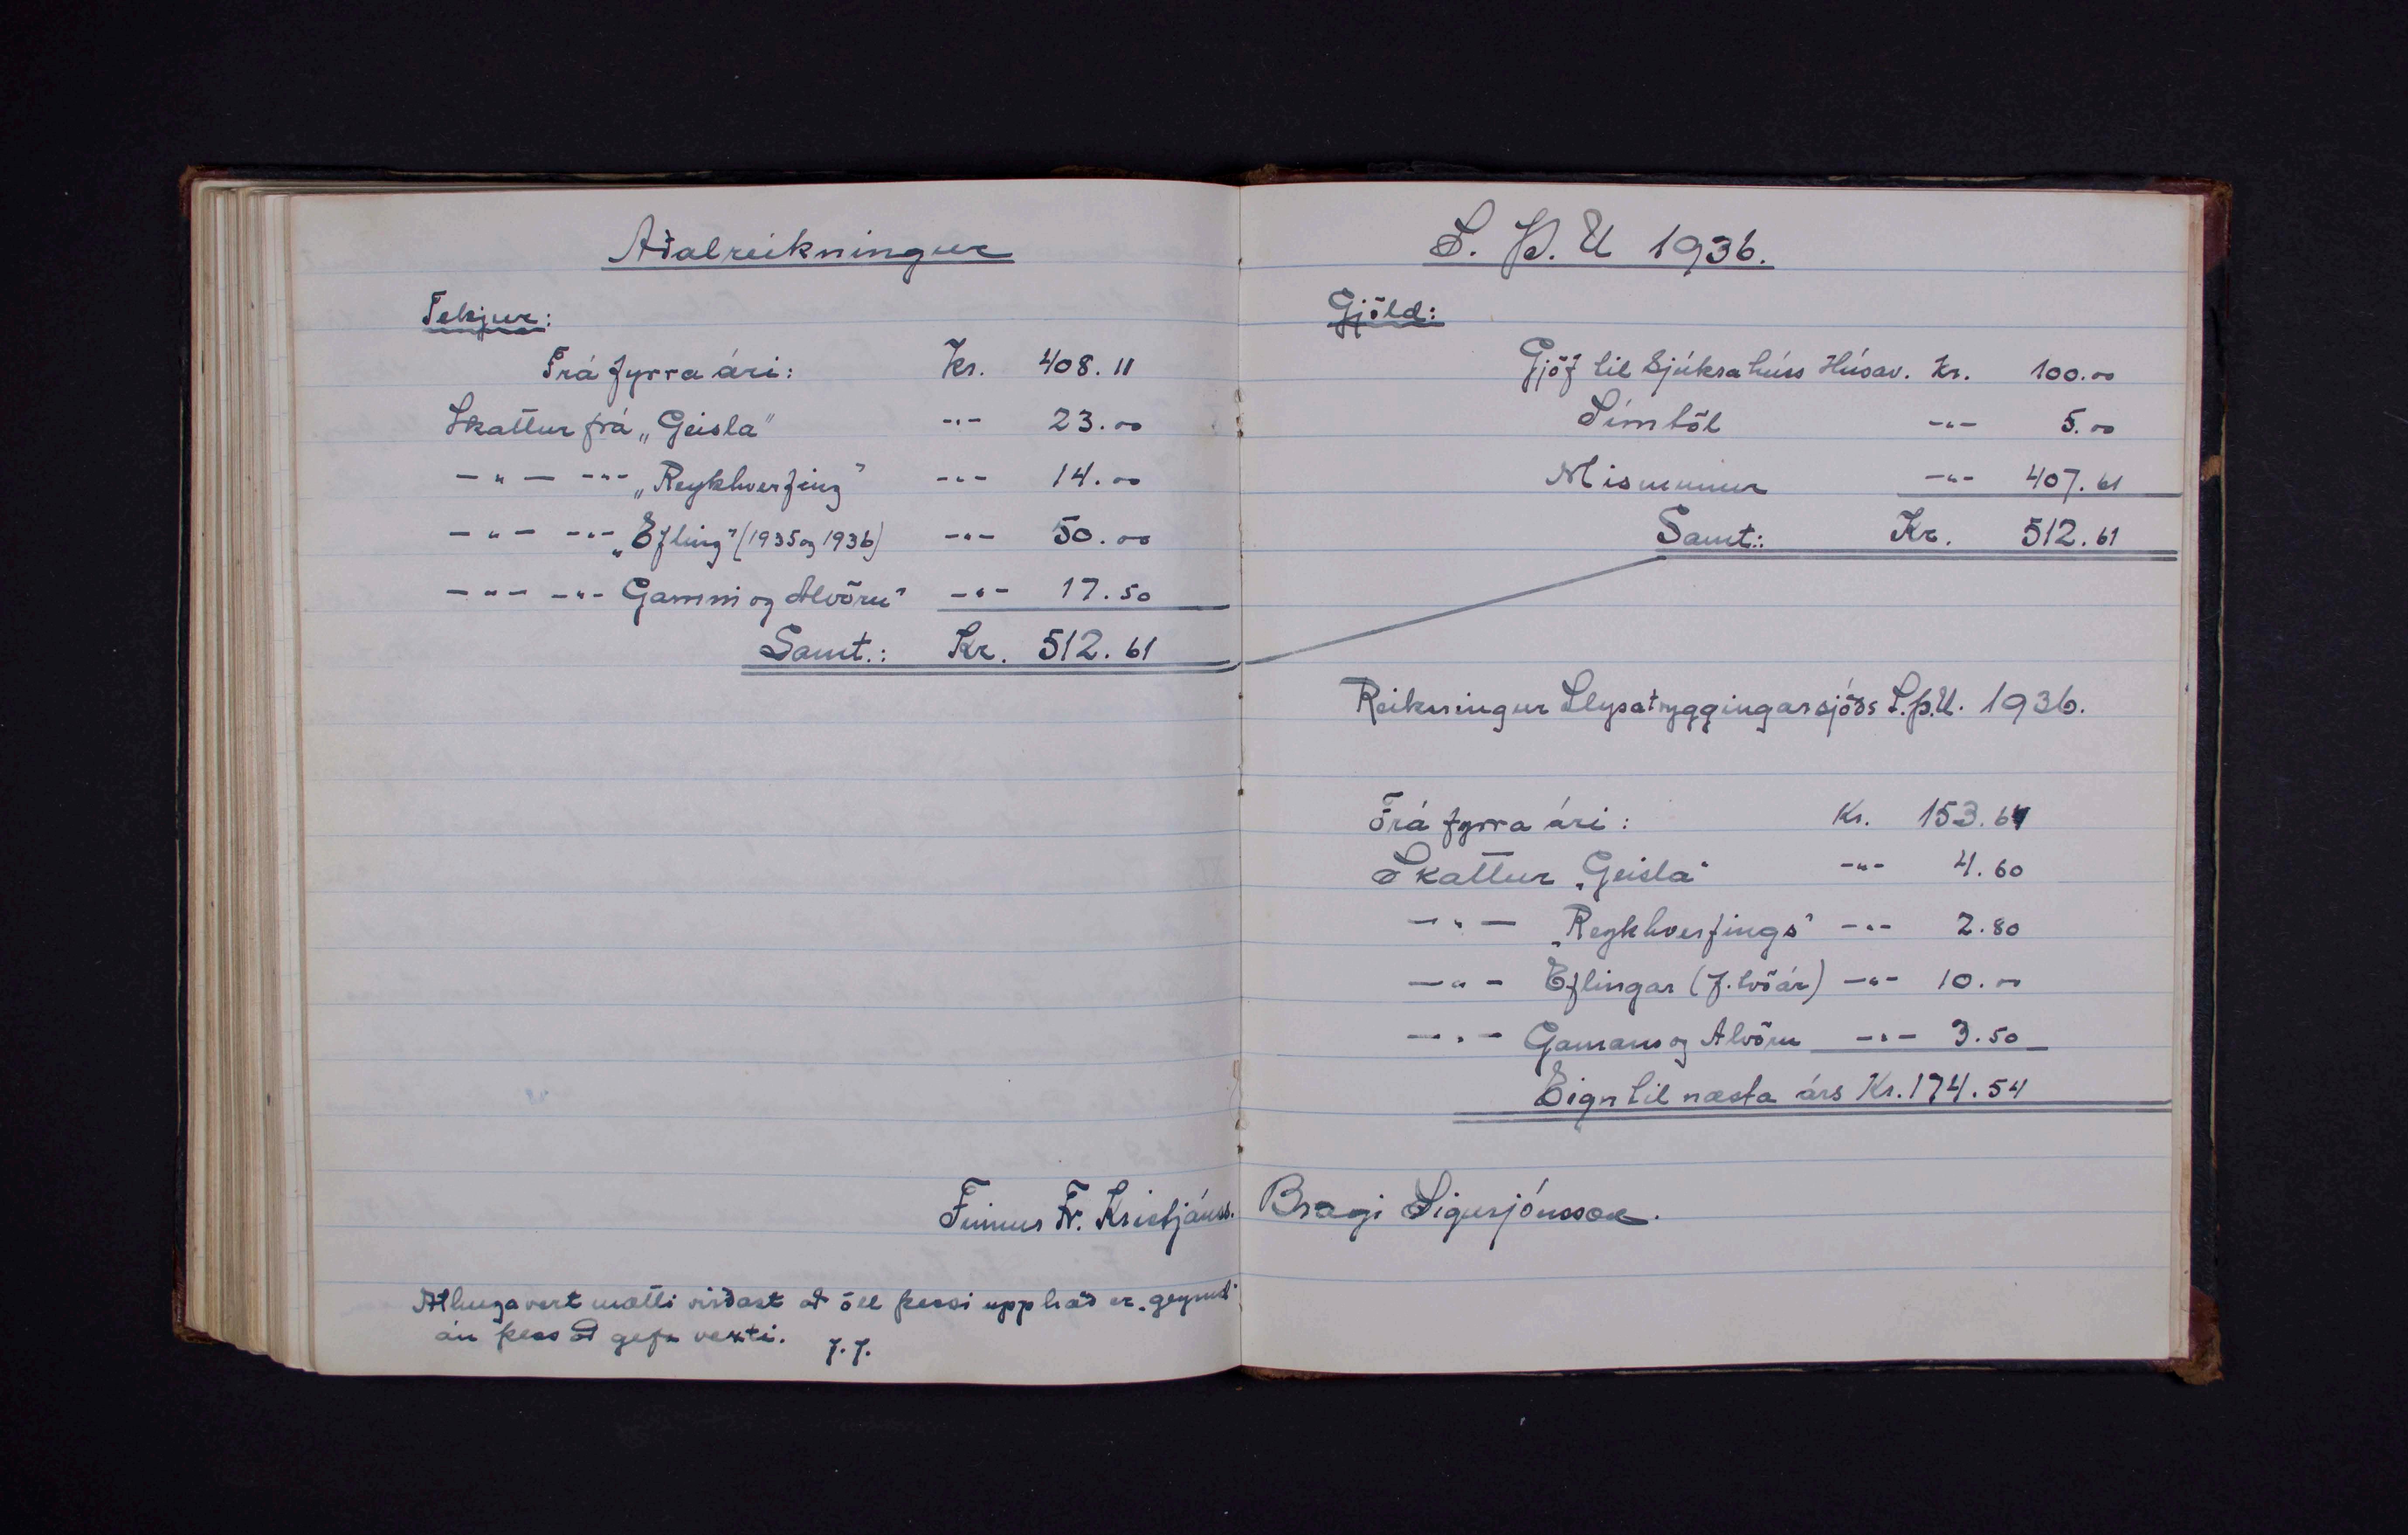 Aðalreikningur
Tekjur:
Frá fyrra ári: Kr. 408.11
Skattur frá „Geisla" -"- 23.00
-"- -"- „Reykhverfing" -"- 14.00
-"- -"- „Efling" (1935 og 1936) -"- 50.00
-"- -"- Gamni og Alvöru" -"- 17.50
Samt.: Kr. 512.61
Finnur Fr. Kristjánss.
Athugavert mætti virðast að öll þessi upphæð er geymd
án þess að gefa vexti. J.J.
S. Þ. U 1936.
Gjöld:
Gjöf til Sjúkrahúss Húsav. Kr. 100.00
Símtöl -"- 5.00
Mismunur -"- 407.61
Samt.: Kr. 512.61
Reikningur Slysatryggingarsjóðs S.þ.U. 1936.
Frá fyrra ári: Kr. 153.64
Skattur „Geisla" -"- 4.60
-"- „Reykhverfings" -"- 2.80
-"- Eflingar (f. tvö ár) -"- 10.00
-"- Gamans og Alvöru -"- 3.50
Eign til næsta árs Kr. 174.54
Bragi Sigurjónsson.